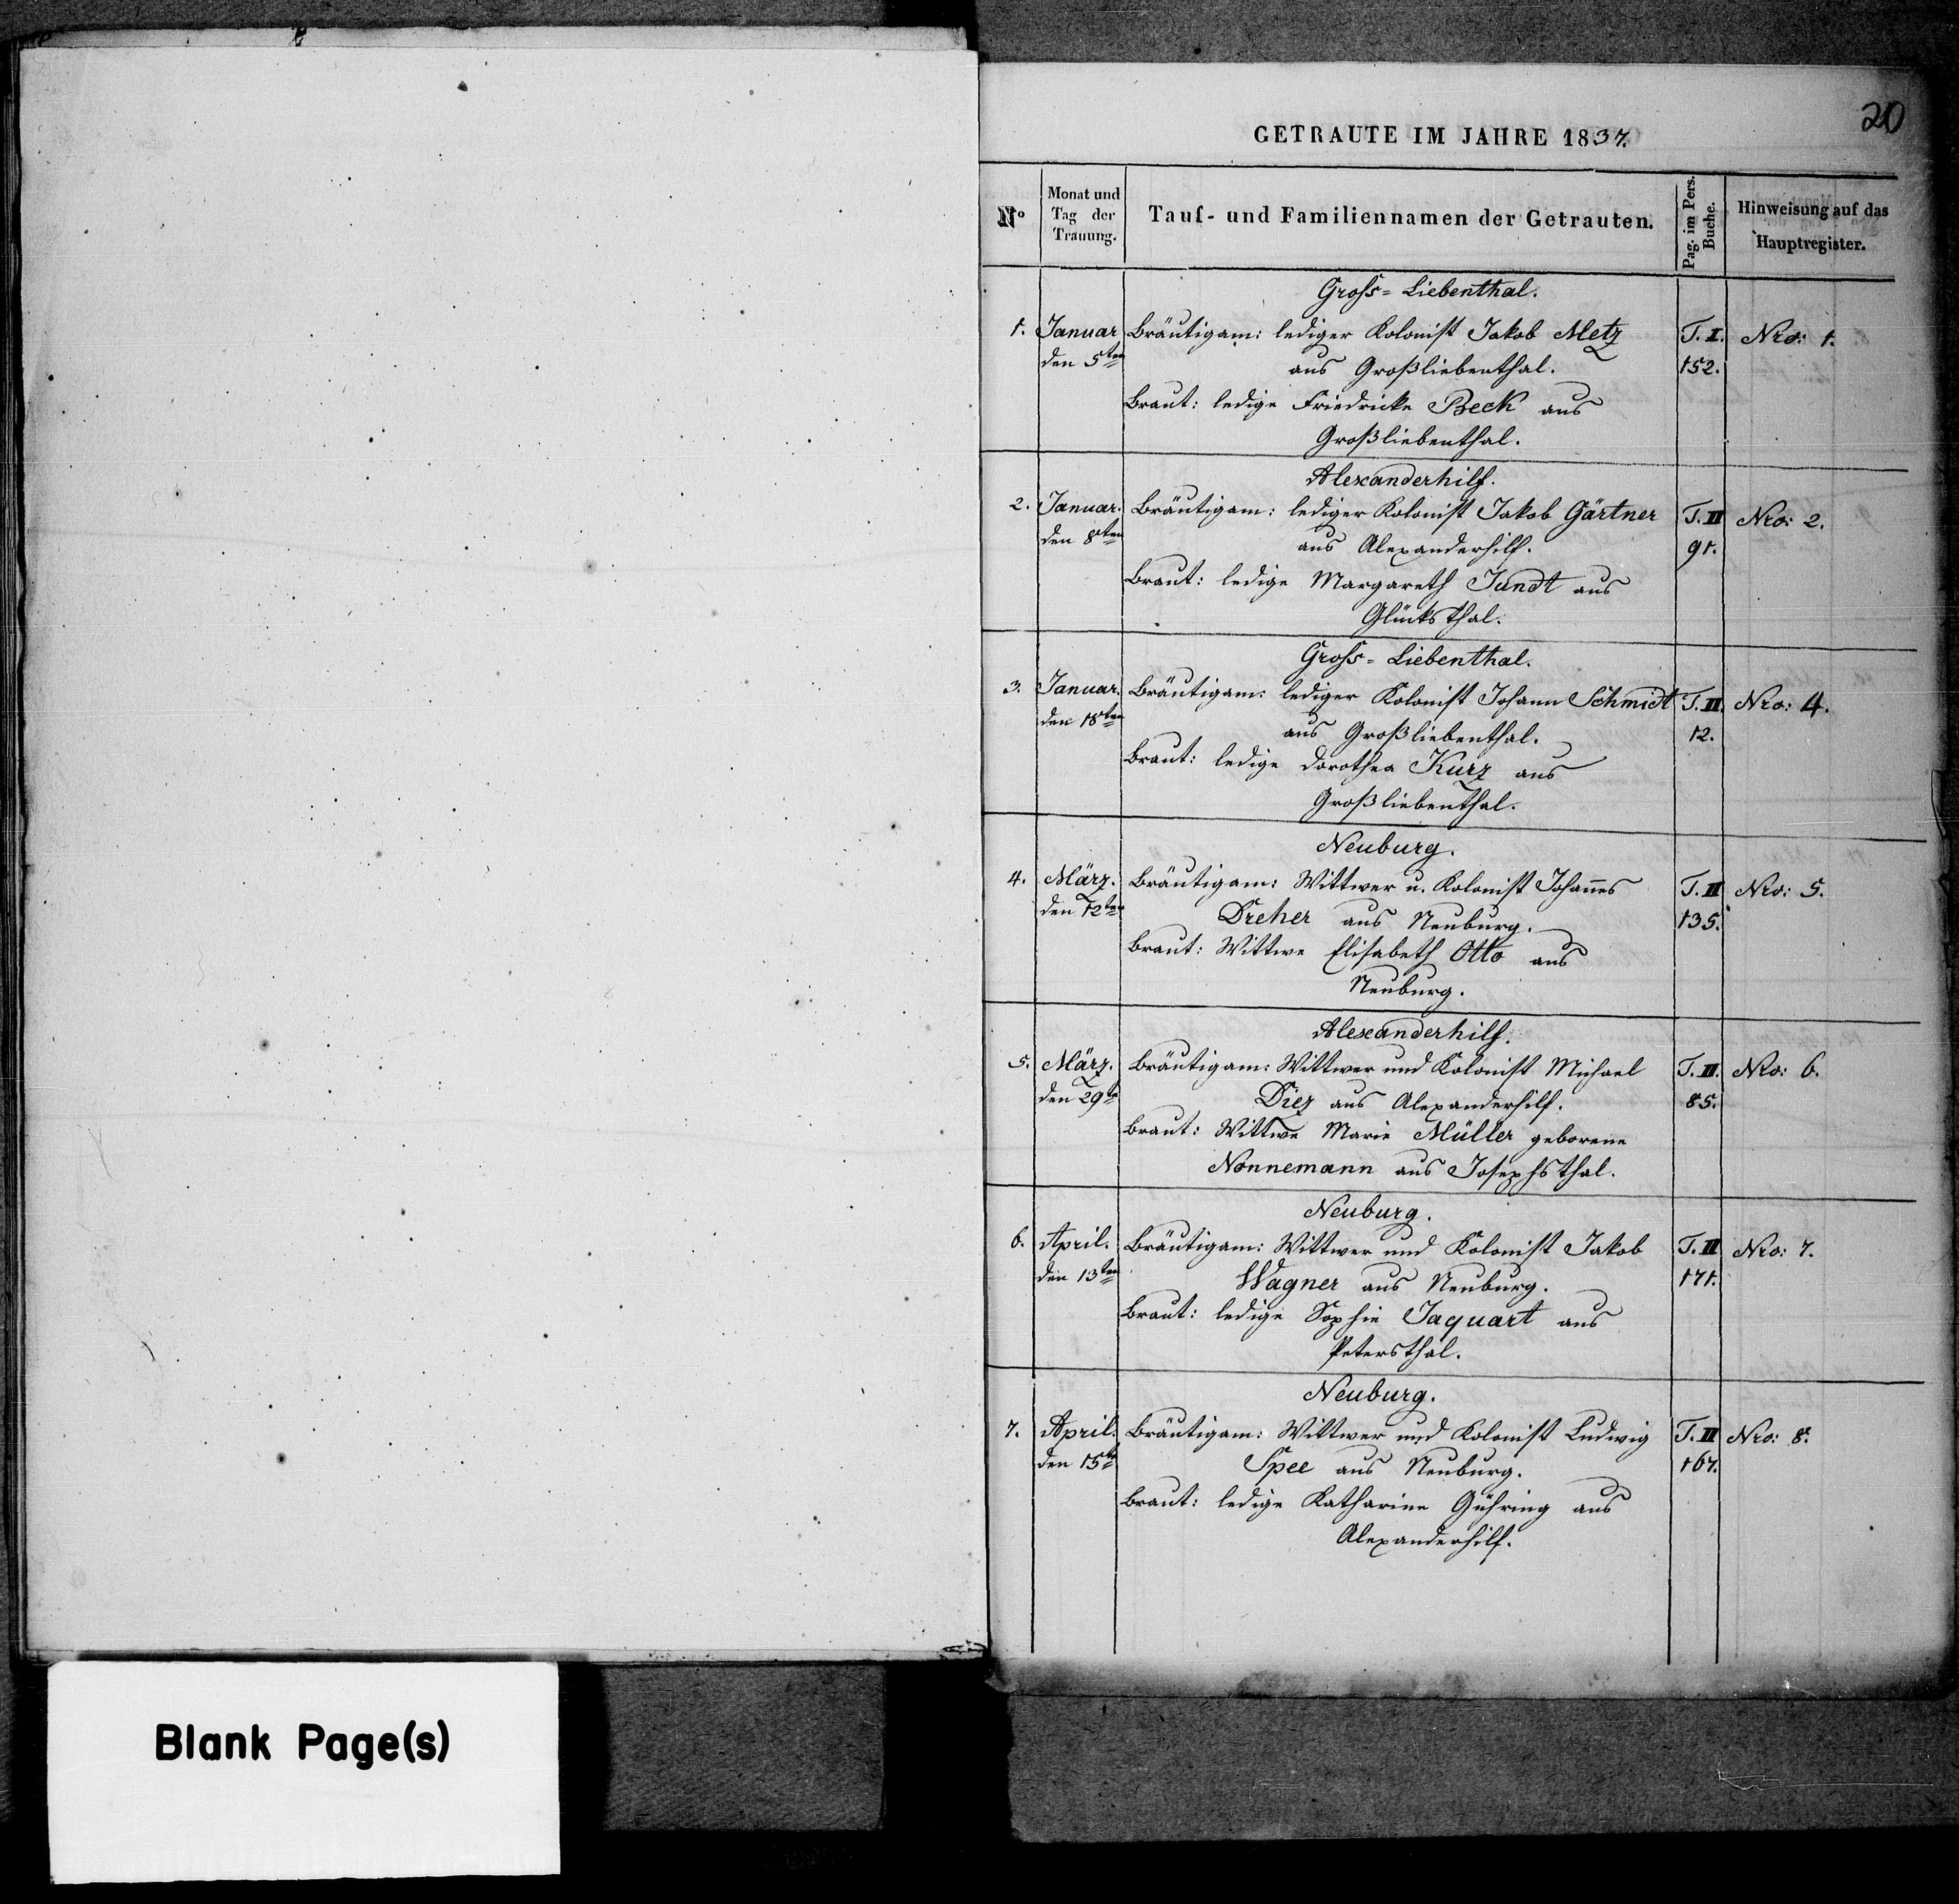 20
GETRAUTE IM JAHRE 1837.
No
Monat und
Tag der
Trauung.
Tauf- und Familiennamen der Getrauten.
Pag. im Pers.
Buche.
Hinweisung auf das
Hauptregister.
Gross-Liebenthal.
1. Januar Bräutigam: lediger Kolonist Jakob Metz T. I. Nro: 1.
den 5ten aus Großliebenthal. 152.
Braut: ledige Friedricke Beck aus
Großliebenthal.
Alexanderhilf.
2. Januar. Bräutigam: lediger Kolonist Jakob Gärtner T. II Nro: 2.
den 8ten aus Alexanderhilf. 91.
Braut: ledige Margareth Jundt aus
Glücksthal.
Gross-Liebenthal.
3. Januar. Bräutigam: lediger Kolonist Johann Schmidt T. II. Nro: 4.
den 18ten aus Großliebenthal. 12.
Braut: ledige Dorothea Kurz aus
Großliebenthal.
Neuburg.
4. März. Bräutigam: Wittwer u. Kolonist Johannes T. II Nro: 5.
den 12ten Dreher aus Neuburg. 135.
Braut: Wittwe Elisabeth Otto aus
Neuburg.
Alexanderhilf.
5. März. Bräutigam: Wittwer und Kolonist Michael T. II. Nro: 6.
den 29te Diez aus Alexanderhilf. 85.
Braut: Wittwe Marie Müller geborene
Nonnemann aus Josephsthal.
Neuburg.
6. April. Bräutigam: Wittwer und Kolonist Jakob T. II Nro: 7.
den 13ten Wagner aus Neuburg. 171.
Braut: ledige Sophie Jaquart aus
Petersthal.
Neuburg.
7. April. Bräutigam: Wittwer und Kolonist Ludwig T. II Nro: 8.
den 15te Spee aus Neuburg. 167.
Braut: ledige Katharine Gühring aus
Alexanderhilf.
Blank Page(s)